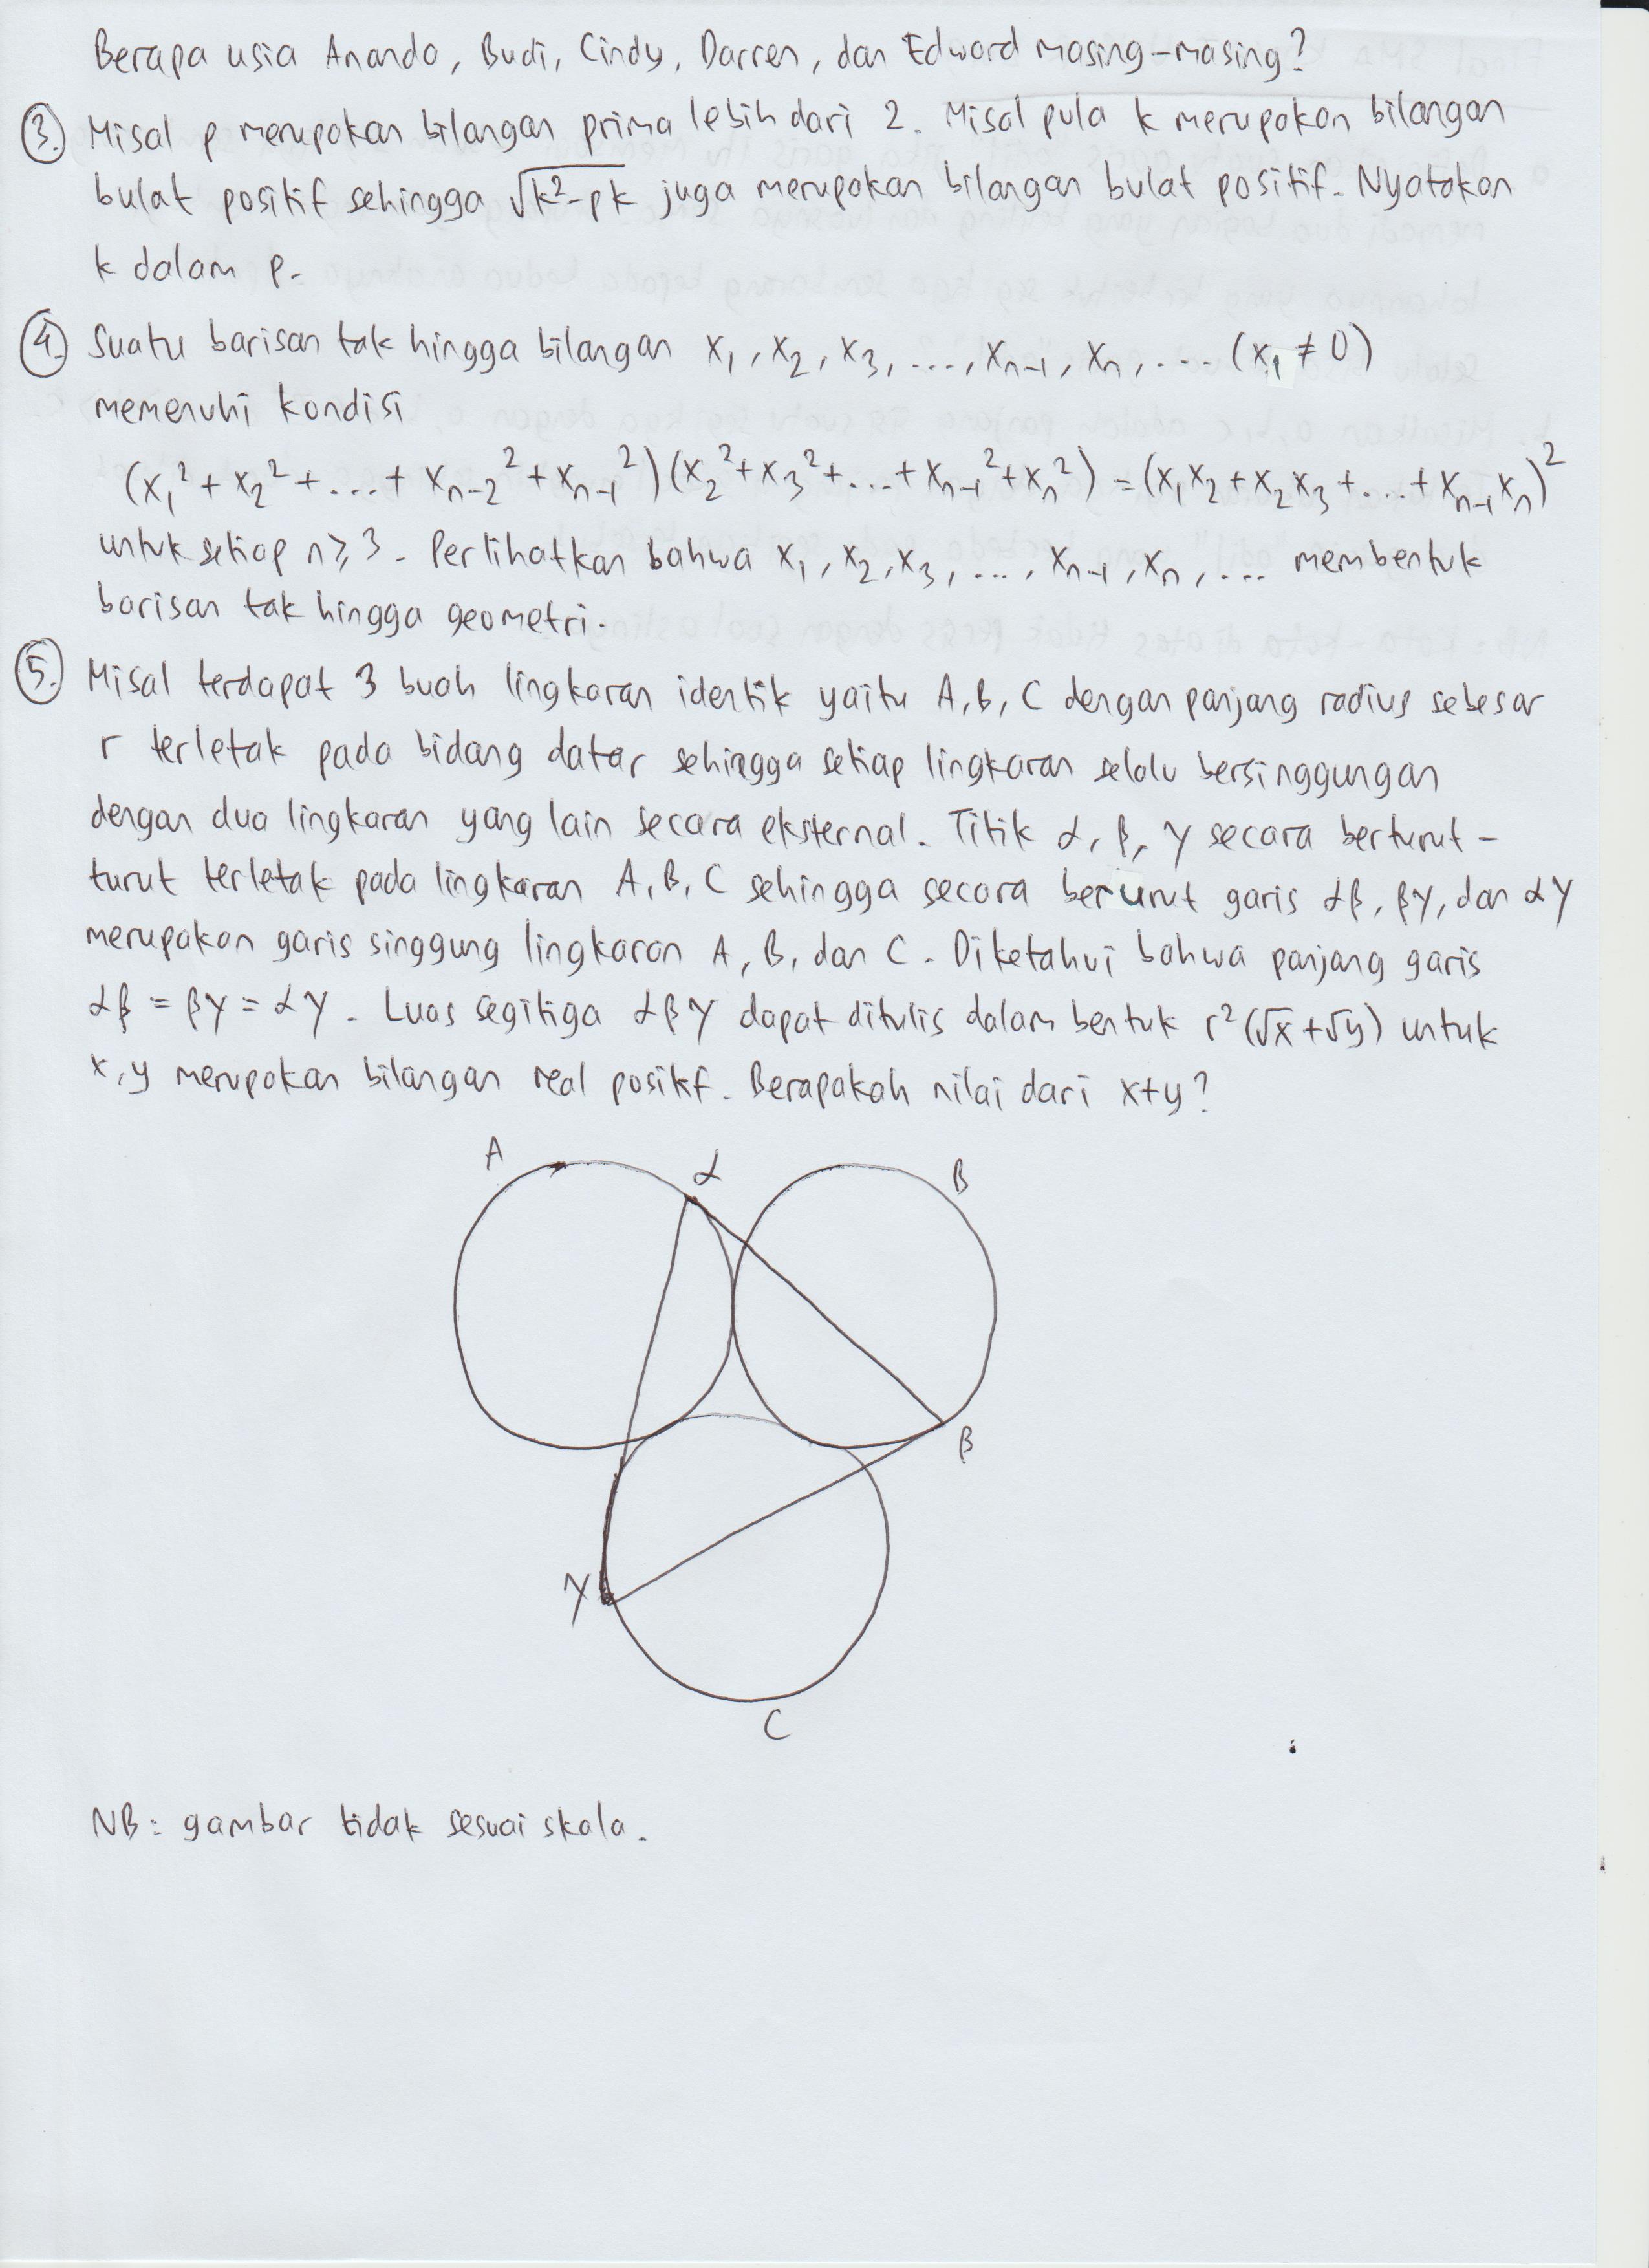 Berapa usia Anando, Budi, Cindy, Darren, dan Edward masing-masing?
3. Misal p merupakan bilangan prima lebih dari 2. Misal pula k merupakan bilangan
bulat positif sehingga √(k²-pk) juga merupakan bilangan bulat positif. Nyatakan
k dalam p.
4. Suatu barisan tak hingga bilangan x₁, x₂, x₃, ..., xₙ₋₁, xₙ, ... (x₁ ≠ 0)
memenuhi kondisi
(x₁² + x₂² + ... + xₙ₋₂² + xₙ₋₁²)(x₂² + x₃² + ... + xₙ₋₁² + xₙ²) = (x₁x₂ + x₂x₃ + ... + xₙ₋₁xₙ)²
untuk setiap n ≥ 3. Perlihatkan bahwa x₁, x₂, x₃, ..., xₙ₋₁, xₙ, ... membentuk
barisan tak hingga geometri.
5. Misal terdapat 3 buah lingkaran identik yaitu A, B, C dengan panjang radius sebesar
r terletak pada bidang datar sehingga setiap lingkaran selalu bersinggungan
dengan dua lingkaran yang lain secara eksternal. Titik α, β, γ secara berturut-
turut terletak pada lingkaran A, B, C sehingga secara berurut garis αβ, βγ, dan αγ
merupakan garis singgung lingkaran A, B, dan C. Diketahui bahwa panjang garis
αβ = βγ = αγ. Luas segitiga αβγ dapat ditulis dalam bentuk r²(√x + √y) untuk
x, y merupakan bilangan real positif. Berapakah nilai dari x+y?
A α B
β
γ
C
NB: gambar tidak sesuai skala.